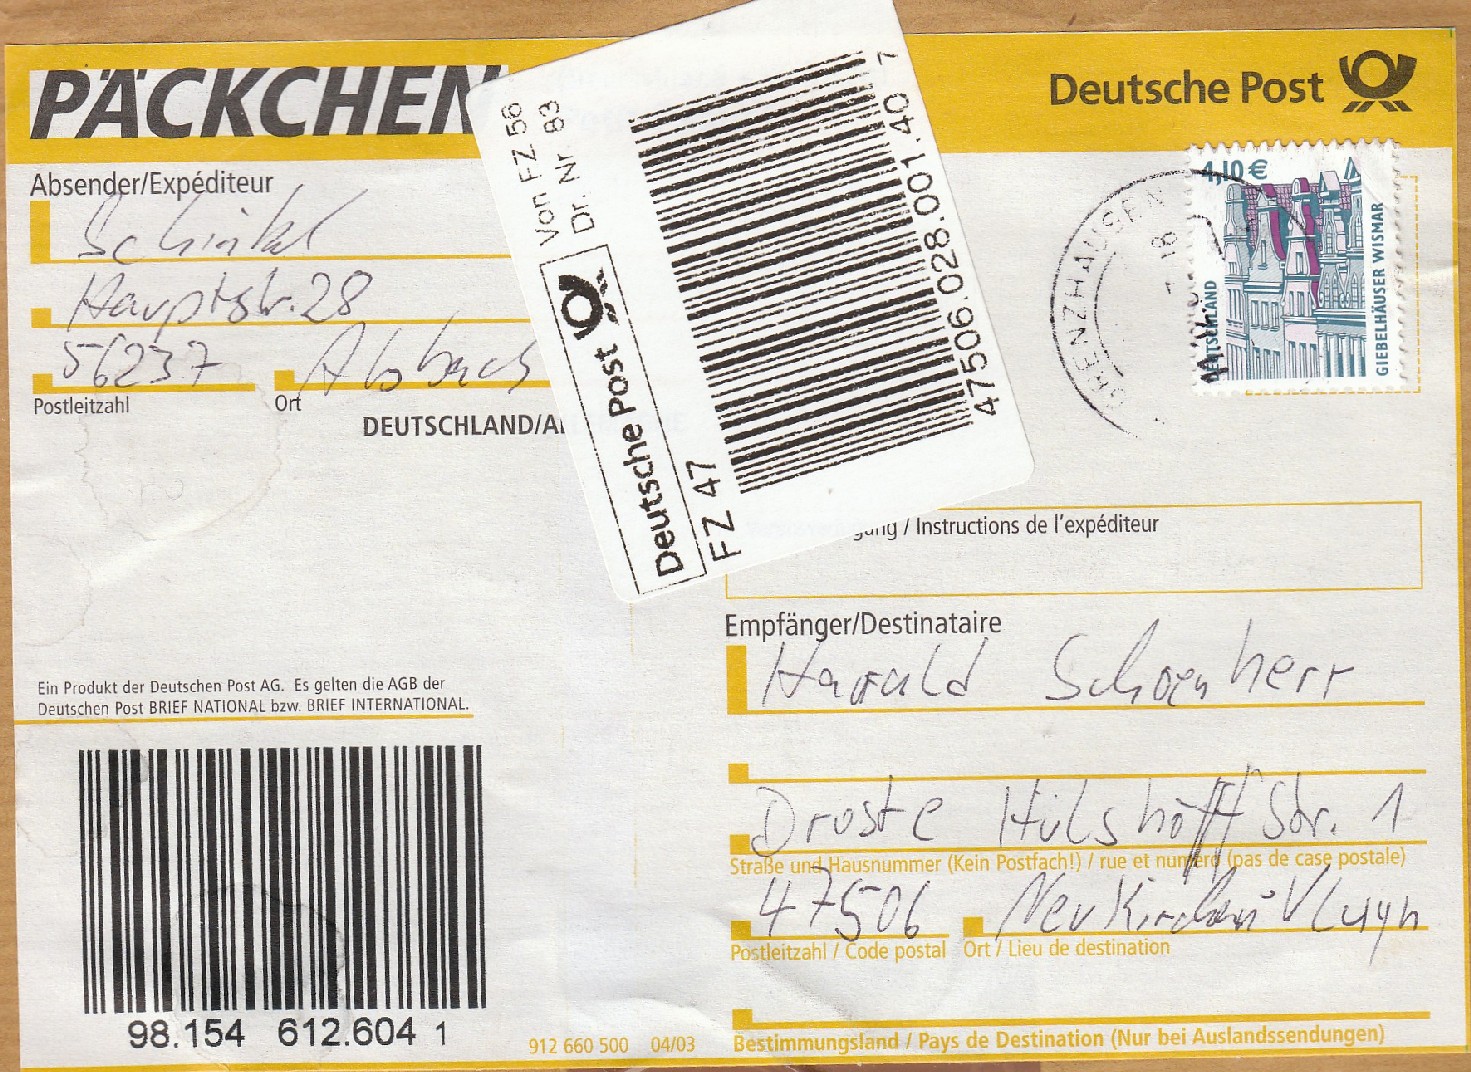 PÄCKCHEN
Deutsche Post
Absender/Expéditeur
Schinkel
Hauptstr. 28
56237 Alsbach
Postleitzahl Ort
DEUTSCHLAND/AL
Von FZ 56
Dr. Nr. 83
Deutsche Post
FZ 47
47506.028.001.40 7
4,10 €
DEUTSCHLAND
GIEBELHÄUSER WISMAR
GRENZHAUSEN
18
gung / Instructions de l'expéditeur
Empfänger/Destinataire
Harald Schoenherr
Droste Hülshoff Str. 1
Straße und Hausnummer (Kein Postfach!) / rue et numéro (pas de case postale)
47506 Neukirchen-Vluyn
Postleitzahl / Code postal Ort / Lieu de destination
Bestimmungsland / Pays de Destination (Nur bei Auslandssendungen)
Ein Produkt der Deutschen Post AG. Es gelten die AGB der
Deutschen Post BRIEF NATIONAL bzw. BRIEF INTERNATIONAL.
98.154 612.604 1
912 660 500 04/03